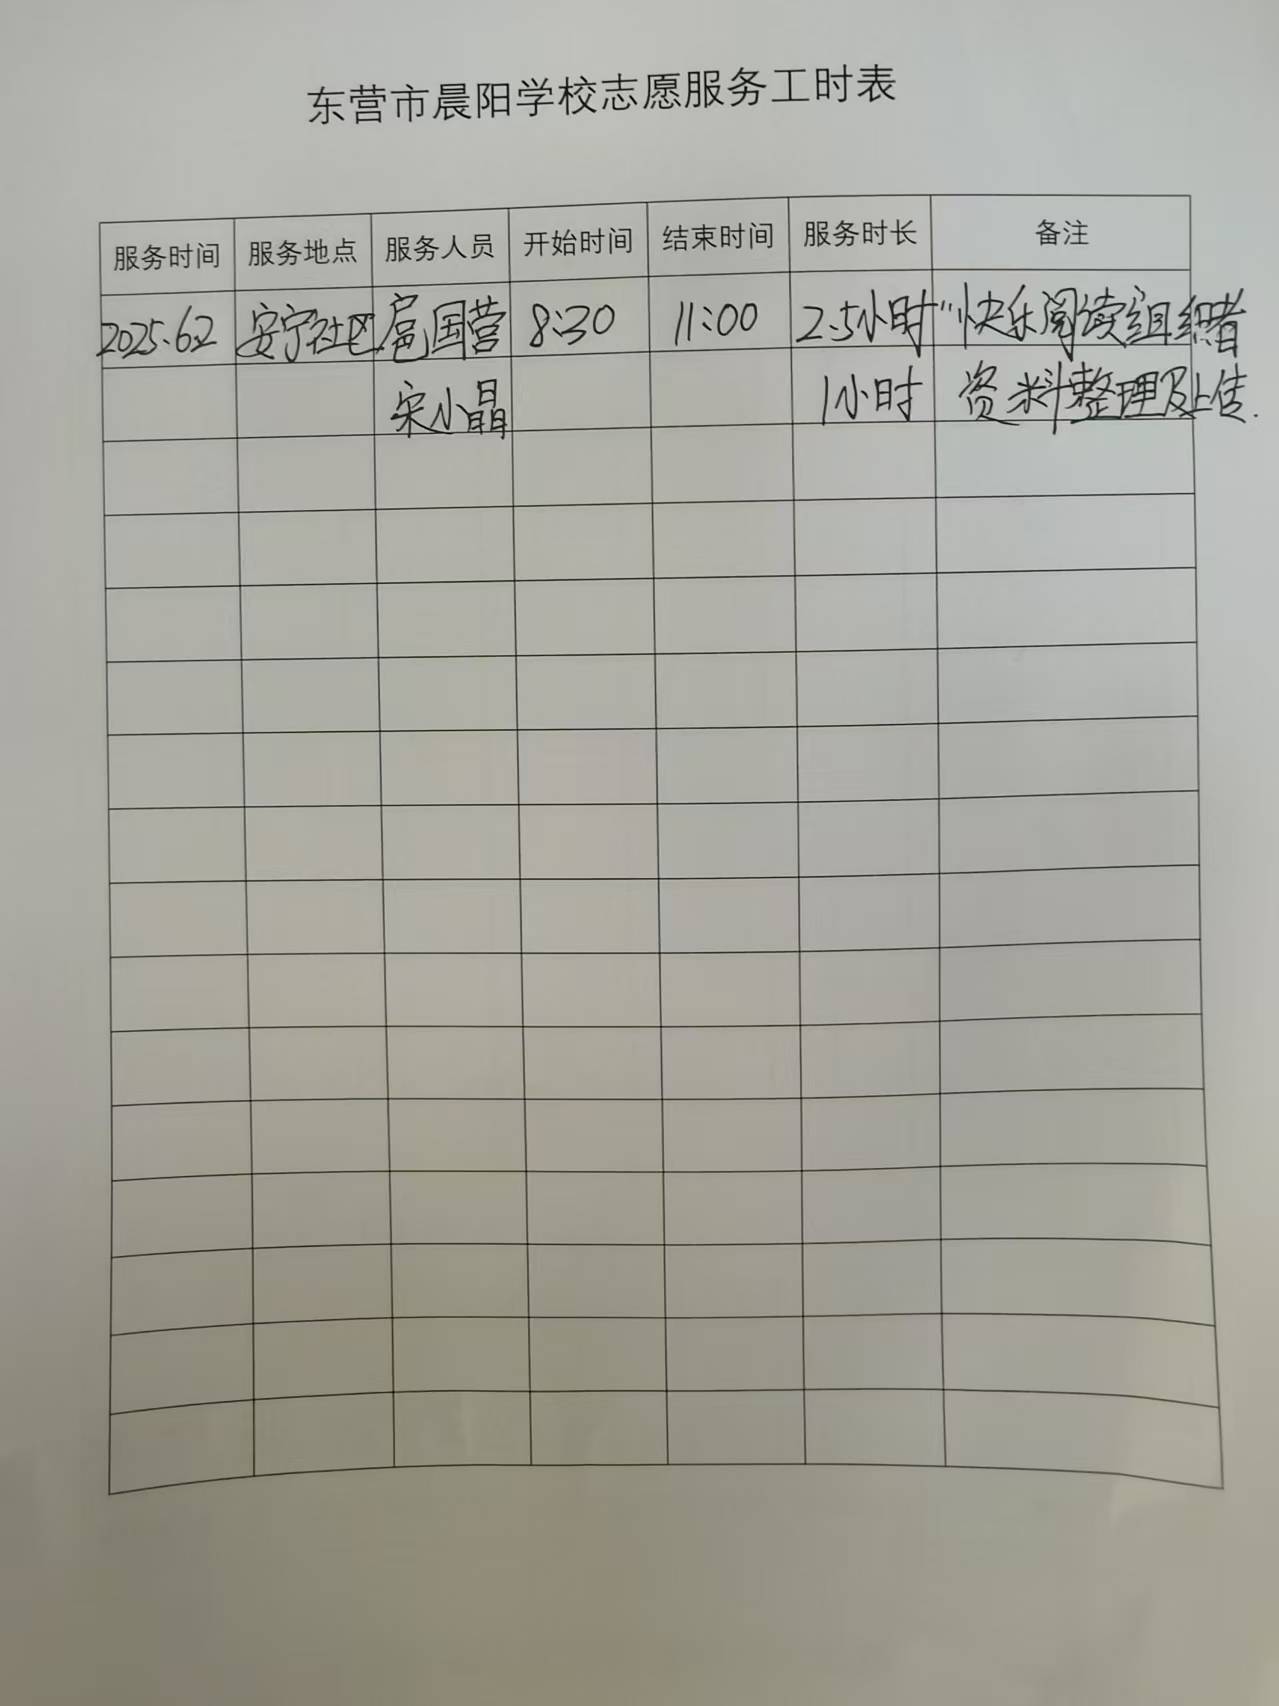 东营市晨阳学校志愿服务工时表
服务时间 服务地点 服务人员 开始时间 结束时间 服务时长 备注
2025.6.2 安宁社区 扈国营 8:30 11:00 2.5小时 "快乐阅读组织者
宋小晶 1小时 资料整理及上传.